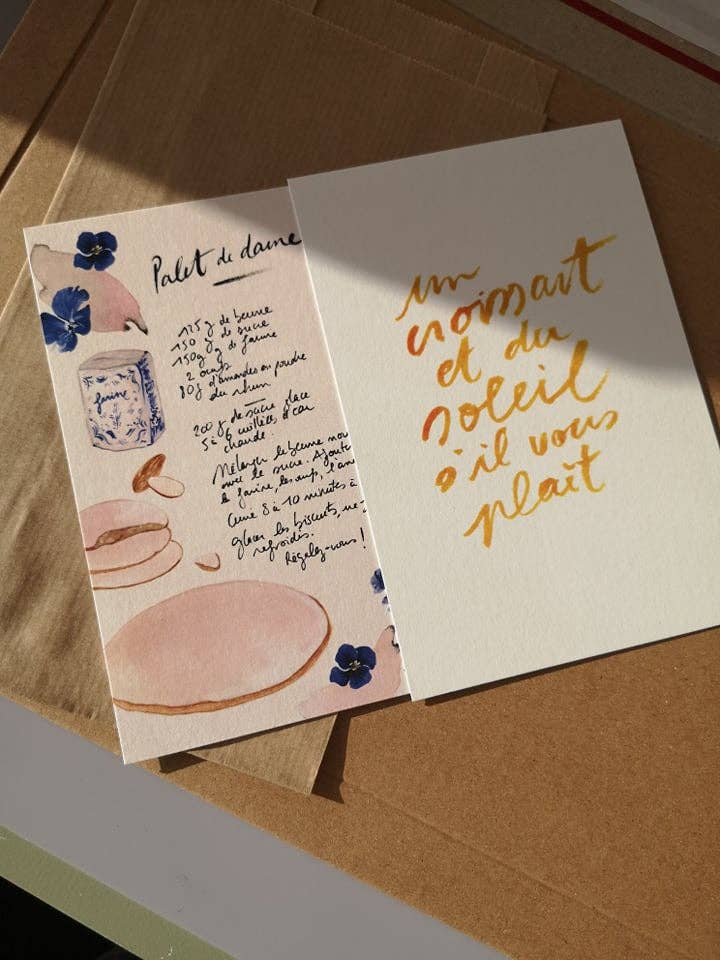 Palet de dame
125 g de beurre
150 g de sucre
150 g de farine
2 oeufs
80 g d'amandes en poudre
du rhum
200 g de sucre glace
5 à 6 cuillères d'eau
chaude.
Mélanger le beurre mou
avec le sucre. Ajoute
la farine, les oeufs, l'am
Cuire 8 à 10 minutes à
glacer les biscuits
refroidis.
Régalez-vous !
farine
un
croissant
et du
soleil
s'il vous
plaît